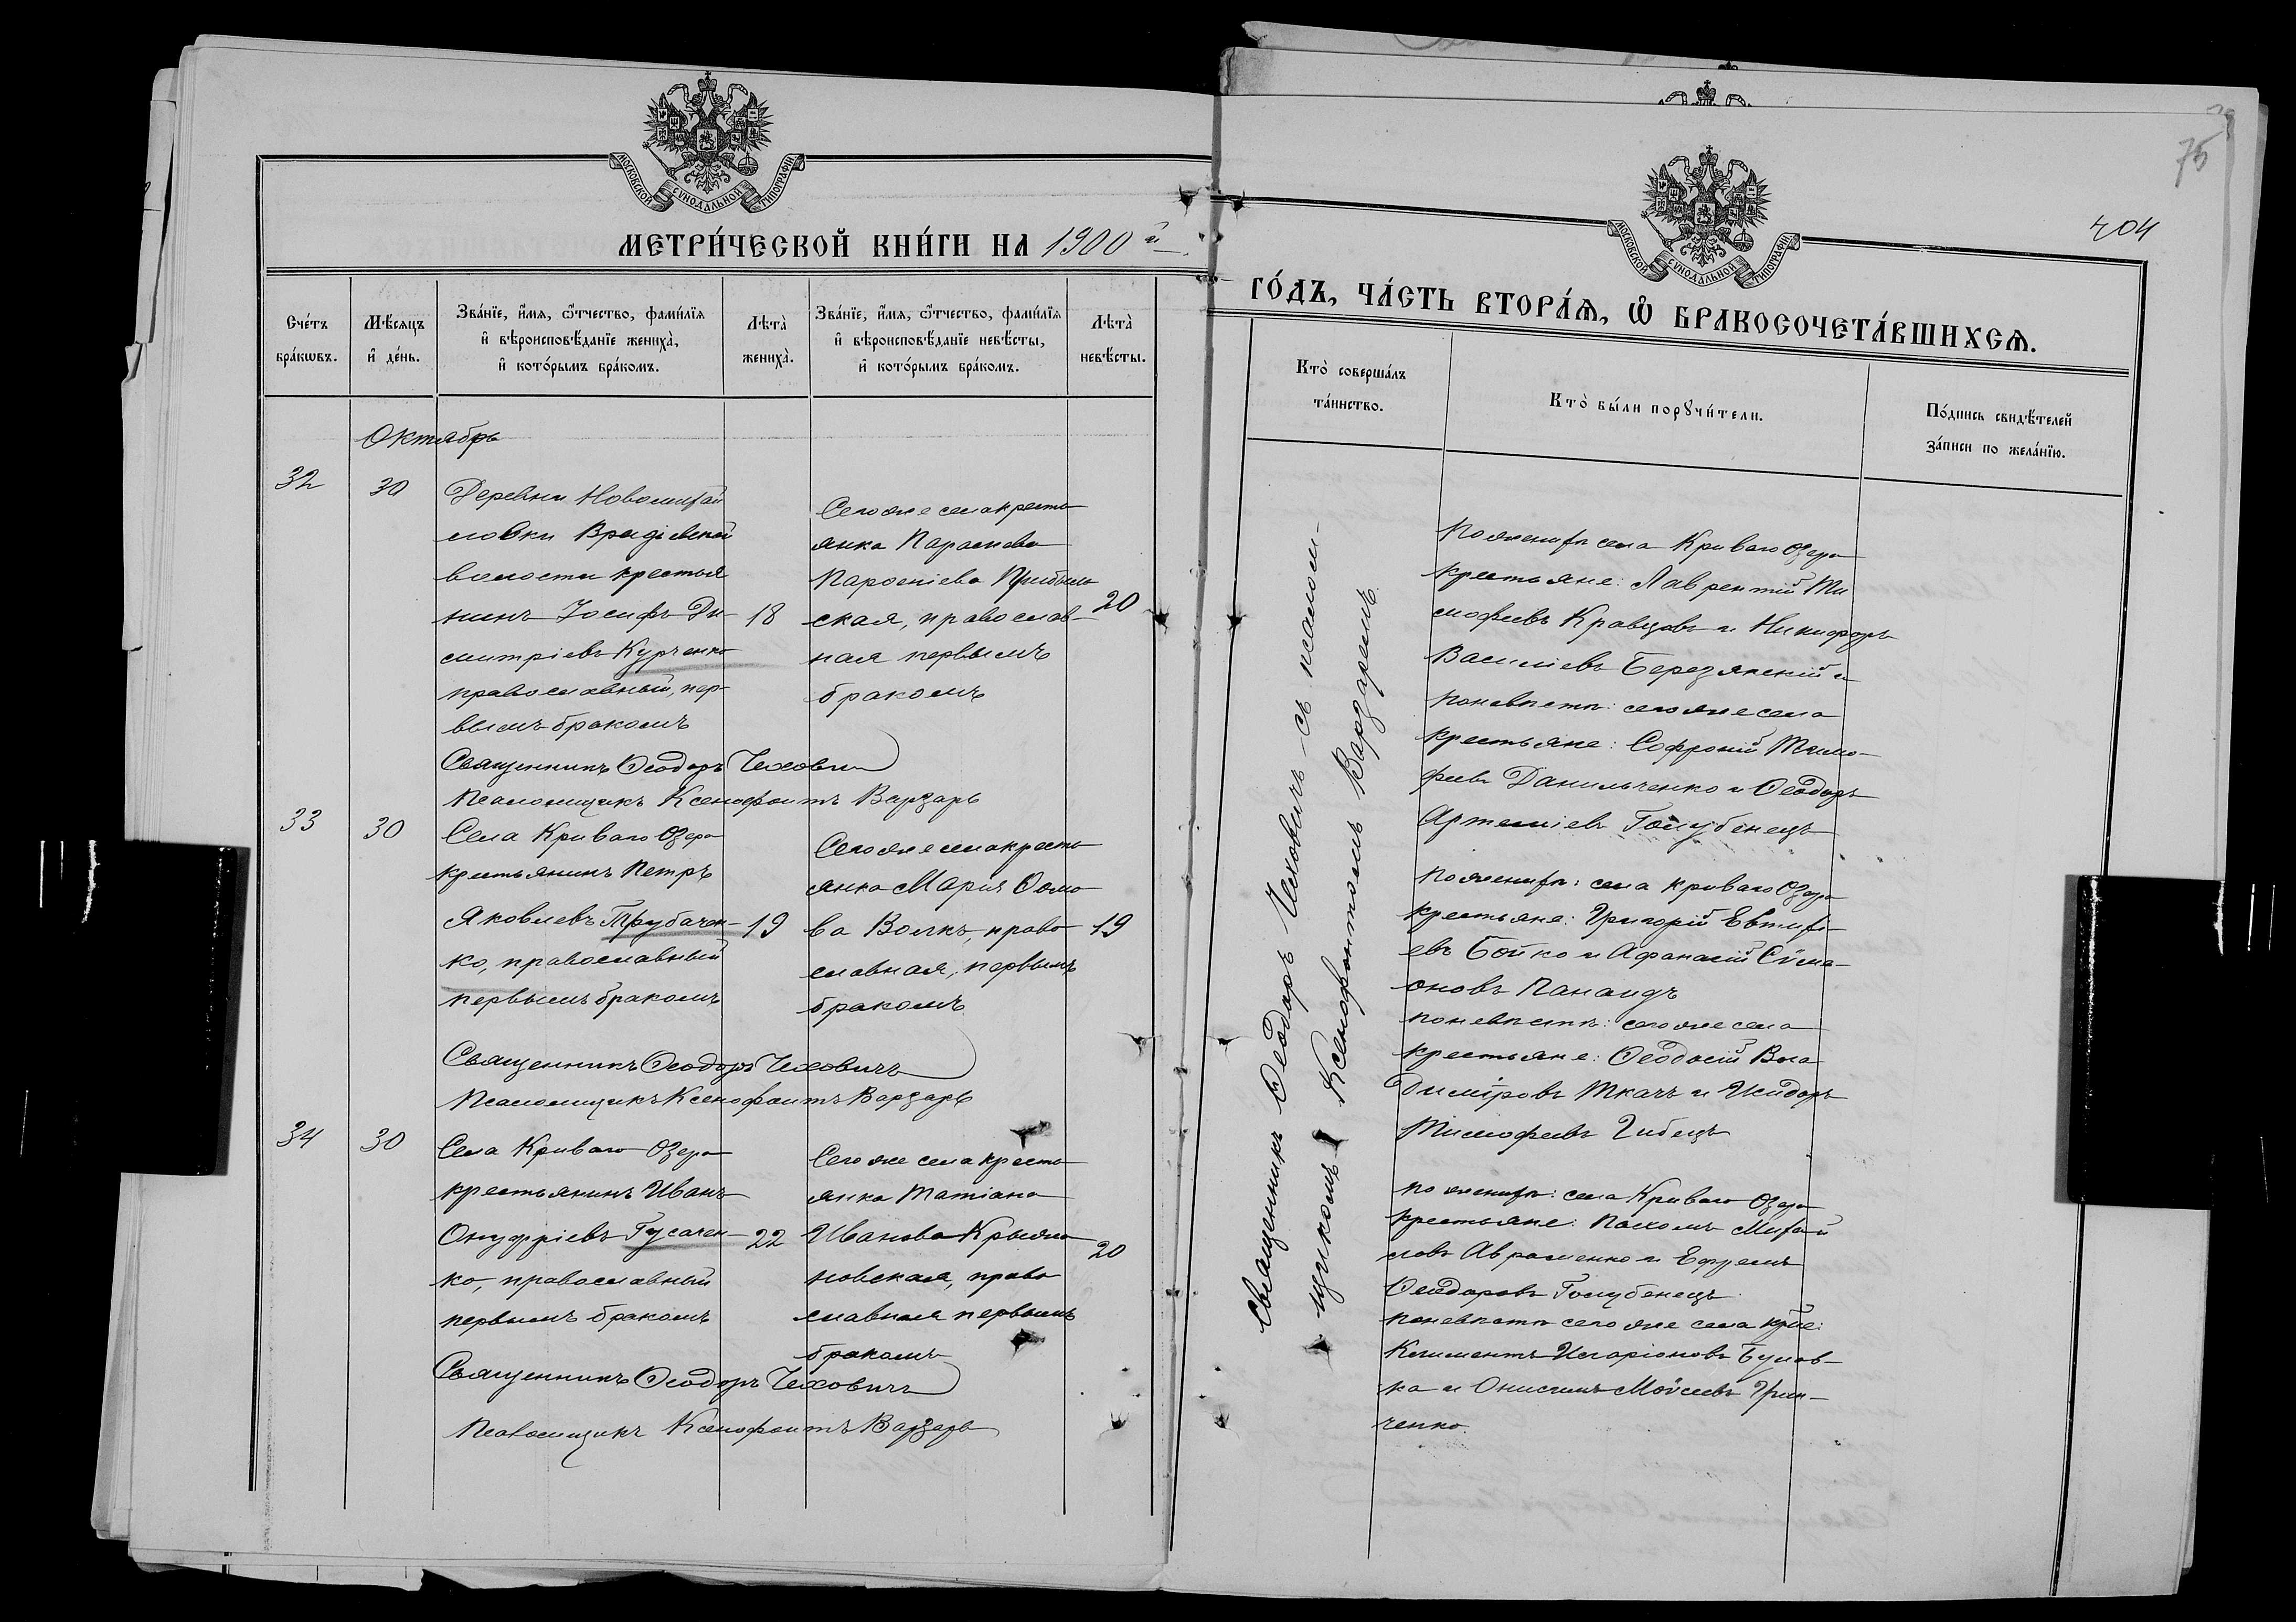 МОСКОВСКОЙ СѴНОДАЛЬНОЙ ТИПОГРАФІИ
МЕТРИ́ЧЕСКОЙ КНИ́ГИ НА 1900й
Сче́тъ бра́кѡвъ.
Мѣ́сяцъ и҆ де́нь.
Зва́нїе, и҆́мѧ, ѻ҆́тчество, фами́лїѧ
и҆ вѣроисповѣ́данїе женихà,
и҆ кото́рымъ бра́комъ.
Лѣтà женихà.
Зва́нїе, и҆́мѧ, ѻ҆́тчество, фами́лїѧ
и҆ вѣроисповѣ́данїе невѣ́сты,
и҆ кото́рымъ бра́комъ.
Лѣтà невѣ́сты.
Октябрь
32
30
Деревни Новомихай
ловки Врадіевской
волости крестья
нинъ Іосифъ Ди-
митріевъ Курченко
православный, пер-
вымъ бракомъ
18
Того же села кресть
янка Параскева
Пароеніева Прибыль
ская, православ-
ная первымъ
бракомъ
20
Священникъ Ѳеодоръ Чеховичъ
Псаломщикъ Ксенофонтъ Варзарь
33
30
Села Криваго Озера
крестьянинъ Петръ
Яковлевъ Трубачен-
ко, православный
первымъ бракомъ
19
Того же села кресть
янка Марія Ѳомо
ва Волкъ, право
славная, первымъ
бракомъ
19
Священникъ Ѳеодоръ Чеховичъ
Псаломщикъ Ксенофонтъ Варзарь
34
30
Села Криваго Озера
крестьянинъ Иванъ
Онуфріевъ Гусачен-
ко, православный
первымъ бракомъ
22
Того же села кресть
янка Татіана
Иванова Крыжа
новская, право
славная первымъ
бракомъ
20
Священникъ Ѳеодоръ Чеховичъ
Псаломщикъ Ксенофонтъ Варзарь
75
404
МОСКОВСКОЙ СѴНОДАЛЬНОЙ ТИПОГРАФІИ
ГО́ДЪ, ЧА́СТЬ ВТОРА́Ѧ, Ѽ БРАКОСОЧЕТА́ВШИХСѦ.
Ктò соверша́лъ
та́инство.
Ктò бы́ли порꙋчи́тели.
По́дпись свидѣ́телей
за́писи по жела́нїю.
Священникъ Ѳеодоръ Чеховичъ съ псалом-
щикомъ Ксенофонтомъ Варзаремъ.
По женихѣ села Криваго Озера
крестьяне: Лаврентій Ти
мофеевъ Кравцовъ и Никифоръ
Василіевъ Березянскій и
по невѣстѣ: того же села
крестьяне: Софроній Тимо-
феевъ Данильченко и Ѳеодоръ
Артеміевъ Голубенецъ
По женихѣ: села Криваго Озера
крестьяне: Григорій Евтихі-
евъ Бойко и Афанасій Симе-
оновъ Панаидъ
по невѣстѣ: того же села
крестьяне: Ѳеодосій Вла
диміровъ Ткачъ и Исидоръ
Тимофеевъ Чибецъ
По женихѣ: села Криваго Озера
крестьяне: Пахомъ Михай
ловъ Авраменко и Ефремъ
Ѳеодоровъ Голубенецъ
по невѣстѣ того же села крѣе:
Климентъ Иларіоновъ Булав-
ка и Онисимъ Мойсеевъ Грин-
ченко.